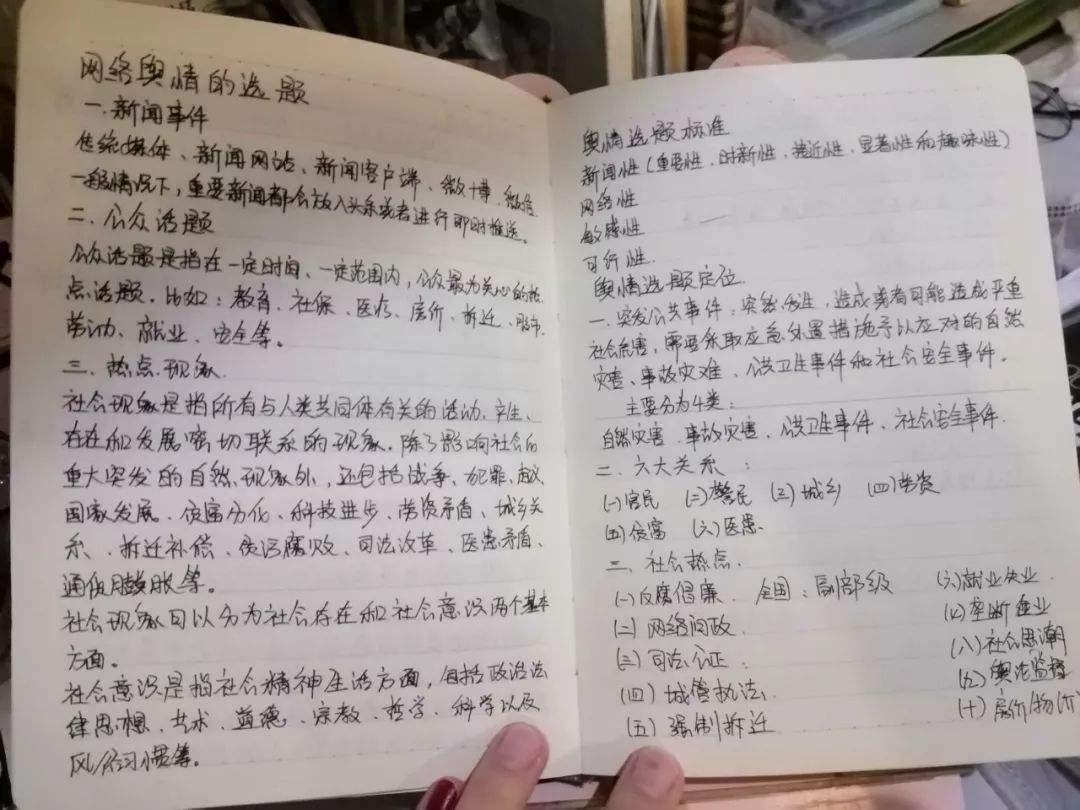 网络舆情的选题
一.新闻事件
传统媒体、新闻网站、新闻客户端、微博、微信
一般情况下，重要新闻都会放入头条或者进行即时推送。
二.公众话题
公众话题是指在一定时间、一定范围内，公众最为关心的热
点话题。比如：教育、社保、医疗、房价、拆迁、股市、
劳动、就业、安全等。
三.热点现象
社会现象是指所有与人类共同体有关的活动、产生、
存在和发展密切联系的现象。除了影响社会的
重大突发的自然现象外，还包括战争、犯罪、
国家发展、贫富分化、科技进步、劳资矛盾、城乡关
系、拆迁补偿、贪污腐败、司法改革、医患矛盾、
通货膨胀等。
社会现象可以分为社会存在和社会意识两个基本
方面。
社会意识是指社会精神生活方面，包括政治法
律思想、艺术、道德、宗教、哲学、科学以及
风俗习惯等。
舆情选题标准
新闻性(重要性、时新性、接近性、显著性和趣味性)
网络性
敏感性
可行性
舆情选题定位
一.突发公共事件：突然发生，造成或者可能造成严重
社会危害，需要采取应急处置措施予以应对的自然
灾害、事故灾难、公共卫生事件和社会安全事件。
主要分为4类：
自然灾害、事故灾害、公共卫生事件、社会安全事件.
二.六大关系：
(一)官民 (二)警民 (三)城乡 (四)劳资
(五)贫富 (六)医患
三.社会热点
(一)反腐倡廉. 全国：副部级 (六)就业失业
(二)网络问政 (七)垄断企业
(三)司法公正 (八)社会思潮
(四)城管执法 (九)舆论监督
(五)强制拆迁 (十)房价物价